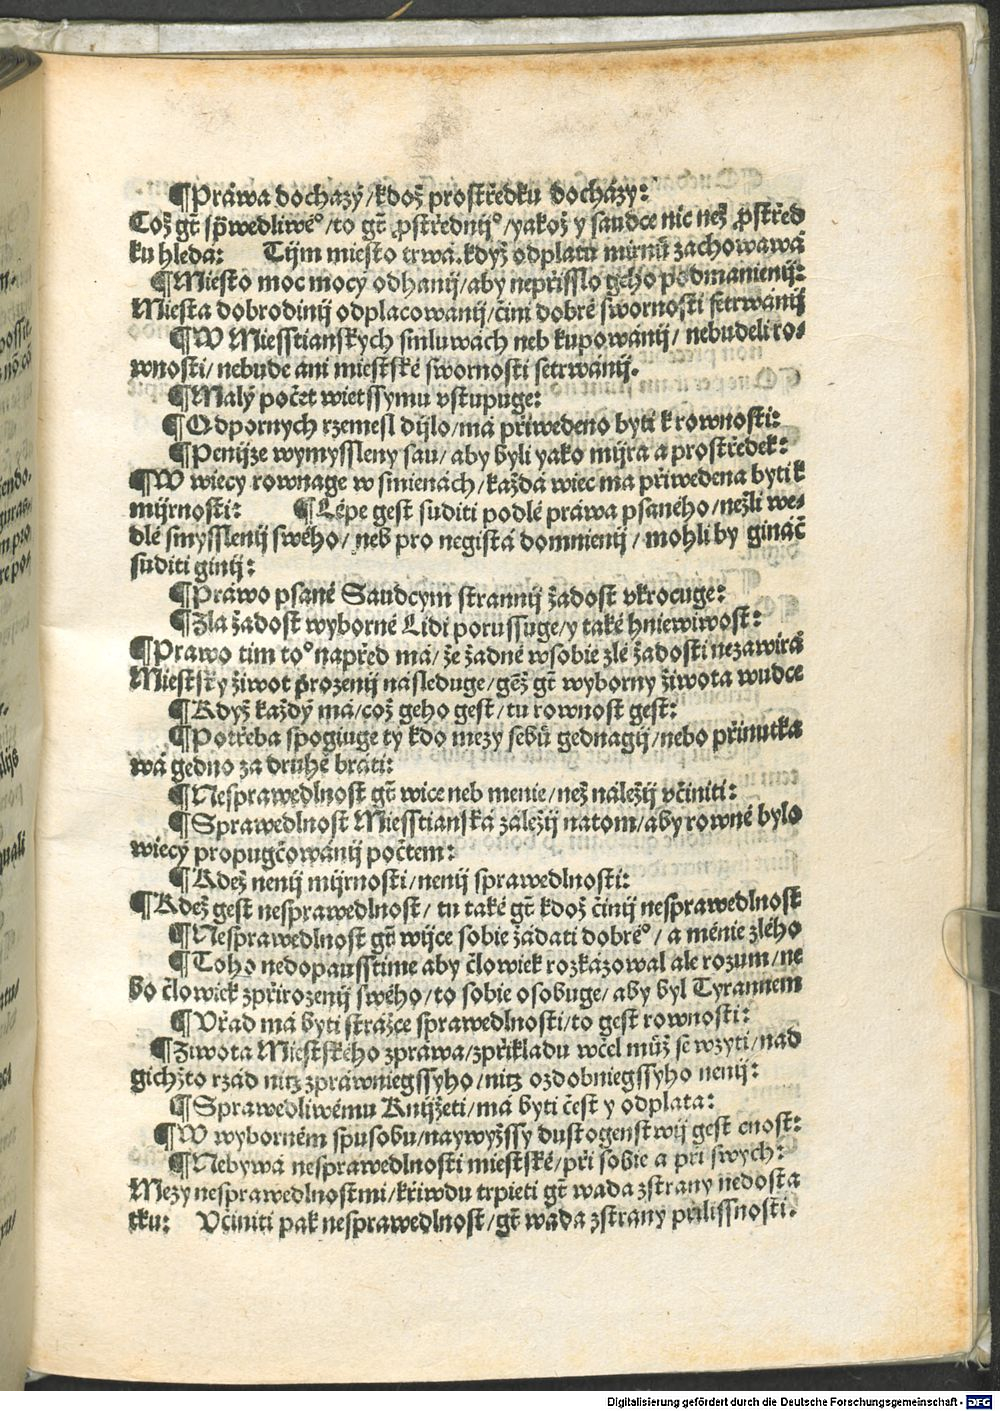 ¶Práwa docházý/kdož prostředku docházy:
Což gt̃ sp̃wedliwéº/to gt̃ ꝓstřednijº/yakož y saudce nic než ꝓstřed
ku hledá: Tijm miesto trwá.když odplatu mirnũ zachowawá
¶Miesto moc mocý odhanij/aby nepřisslo geho podmanienij:
Miesta dobrodinij odplacowanij/čini dobré swornosti setrwánij
¶W Miesstianských smluwách neb kupowánij/ nebudeli ro-
wnosti/nebude ani miestské swornosti setrwánij.
¶Malý počet wietssymu vstupuge:
¶Odporných rzemesl dijlo/má přiwedeno byti k rownosti:
¶Penijze wymyssleny sau/aby byli yako mijra a prostředek:
¶W wiecy rownage w smienách/každá wiec ma přiwedena byti k
mijrnosti: ¶Lépe gest suditi podlé práwa psaného/nežli we-
dlé smysslenij swého/neb pro negistá domnienij/mohli by gináč
suditi ginij:
¶Práwo psané Saudcym strannij žadost vkrocuge:
¶Zlá žadost wyborné Lidi porussuge/y také hniewiwost:
¶Prawo tim toº napřed má/že žadné wsobie zlé žadosti nezawirá
Miestský žiwot přozenij následuge/gež gt̃ wyborny žiwota wudce
¶Když každý má/což geho gest/tu rownost gest:
¶Potřeba spogiuge ty kdo mezy sebũ gednagij/nebo přinutka
wá gedno za druhé bráti:
¶Nesprawedlnost gt̃ wice neb menie/než náležij včiniti:
¶Sprawedlnost Miesstianská záležij natom/aby rowné bylo
wiecý propugčowánij počtem:
¶Kdež nenij mijrnosti/nenij sprawedlnosti:
¶Kdež gest nesprawedlnost/ tu také gt̃ kdož činij nesprawedlnost
¶Nesprawedlnost gt̃ wijce sobie žádati dobréº/a ménie zlého
¶Toho nedopausstime aby člowiek rozkázowal ale rozum/ne
bo člowiek zpřirozenij swého/to sobie osobuge/aby byl Tyrannem
¶Vřad má byti strážce sprawedlnosti/to gest rownosti:
¶Ziwota Miestského zpráwa/zpřikladu wčel můž se wzyti/nad
gichžto rzád nitz zpráwniegssyho/nitz ozdobniegssyho nenij:
¶Sprawedliwému Knijžeti/má byti čest y odplata:
¶W wyborném spusobu/naywyžssy dustogenstwij gest cnost:
¶Nebywá nesprawedlnosti miestské/při sobie a při swych:
Mezy nesprawedlnostmi/křiwdu trpieti gt̃ wada zstrany nedosta
tku: Včiniti pak nesprawedlnost/gt̃ wáda zstrany přilissnosti.
Digitalisierung gefördert durch die Deutsche Forschungsgemeinschaft - DFG